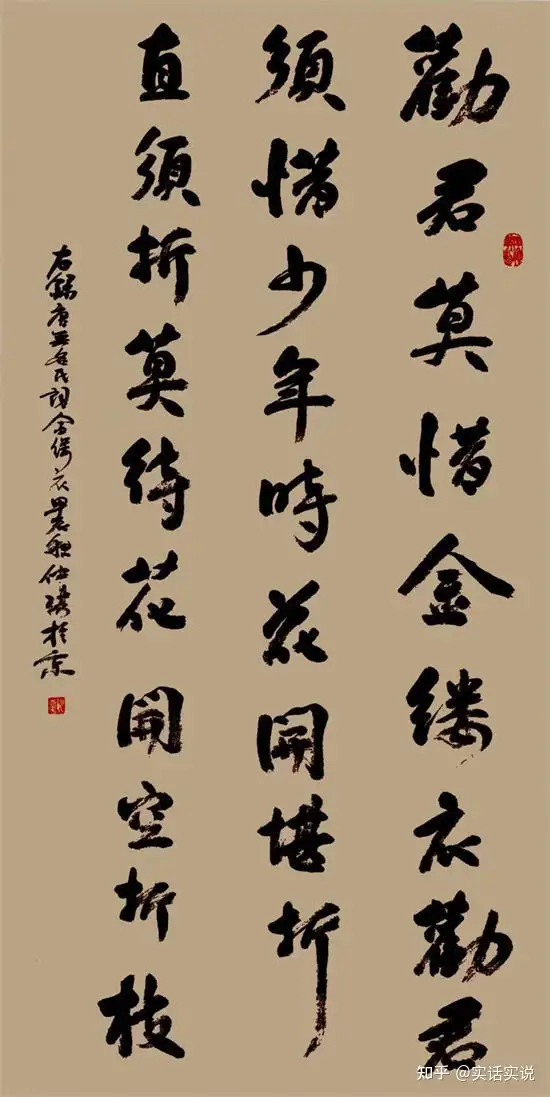 勸君莫惜金缕衣勸君
須惜少年時花開堪折
直須折莫待花開空折枝
右錄唐无名氏詞金缕衣於京
知乎 @实话实说